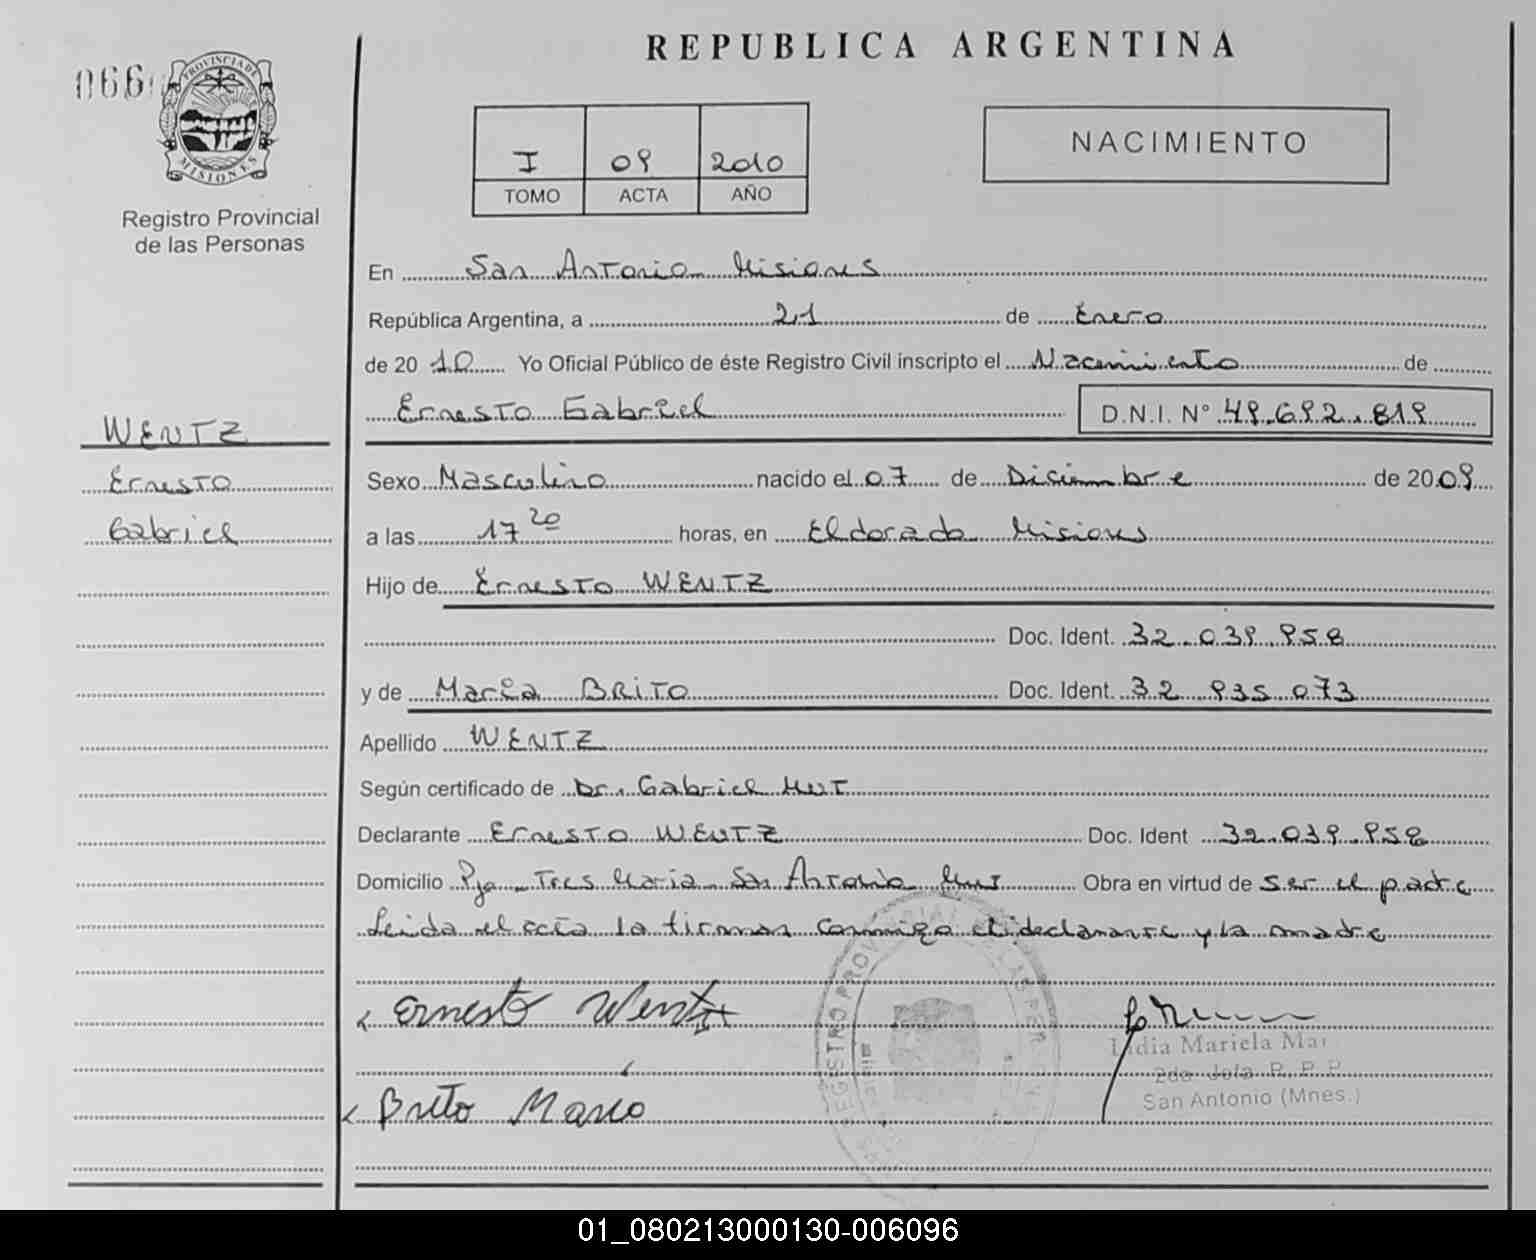 REPUBLICA ARGENTINA
066
PROVINCIA DE
MISIONES
Registro Provincial
de las Personas
I 09 2010
TOMO ACTA AÑO
NACIMIENTO
En San Antonio Misiones
República Argentina, a 21 de Enero
de 2010 Yo Oficial Público de éste Registro Civil inscripto el Nacimiento de
Ernesto Gabriel D.N.I. Nº 49.692.819
WENTZ
Ernesto
Gabriel
Sexo Masculino nacido el 07 de Diciembre de 2009
a las 17 20 horas, en Eldorado Misiones
Hijo de Ernesto WENTZ
Doc. Ident. 32.039.958
y de María BRITO Doc. Ident. 32 935 073
Apellido WENTZ
Según certificado de Dr. Gabriel
Declarante Ernesto WENTZ Doc. Ident 32.039.958
Domicilio Pje. Tres Maria San Antonio Mnes Obra en virtud de ser el padre
Leida el acta la firman conmigo el declarante y la madre
Ernesto Wentz
Lidia Mariela
2da. Jefa. R. P. P.
San Antonio (Mnes.)
Brito María
REGISTRO PROVINCIAL DE LAS PERSONAS
01_080213000130-006096